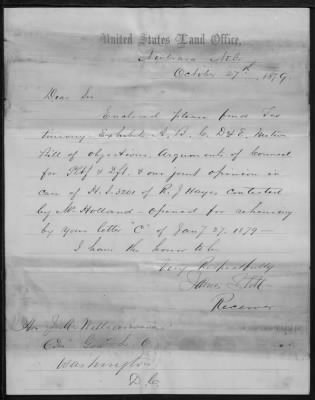 United States Land Office,
October 27th, 1879.
Dear Sir
Enclosed please find Tes
timony. Exhibits A, B, C, D & E, Motion
Bill of objections, Arguments of Counsel
for Pltf & Dft. & our joint opinion in
case of H.S. 3201 of R. J Hayes contested
by Mc Holland - opened for rehearing
by your letter "C" of Jany 27, 1879 -
I have the honor to be
Very Respectfully
James Stott
Receiver
Hon J. A. Williamson
Com Genl L. O
Washington
D. C.